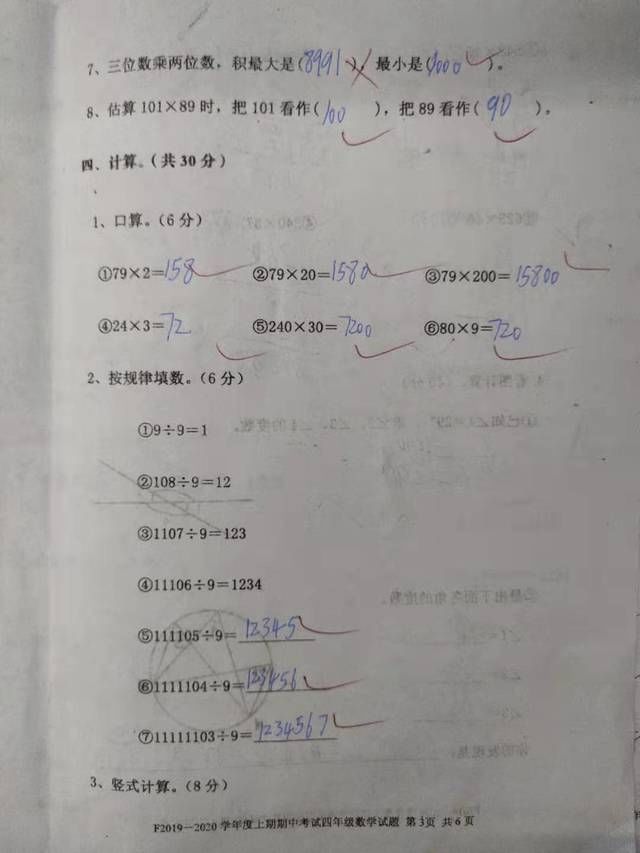 7、三位数乘两位数，积最大是(8991)，最小是(1000)。
8、估算101×89时，把101看作(100)，把89看作(90)。
四、计算。（共30分）
1、口算。（6分）
①79×2=158 ②79×20=1580 ③79×200=15800
④24×3=72 ⑤240×30=7200 ⑥80×9=720
2、按规律填数。（6分）
①9÷9=1
②108÷9=12
③1107÷9=123
④11106÷9=1234
⑤111105÷9=12345
⑥1111104÷9=123456
⑦11111103÷9=1234567
3、竖式计算。（8分）
F2019—2020学年度上期期中考试四年级数学试题 第3页 共6页